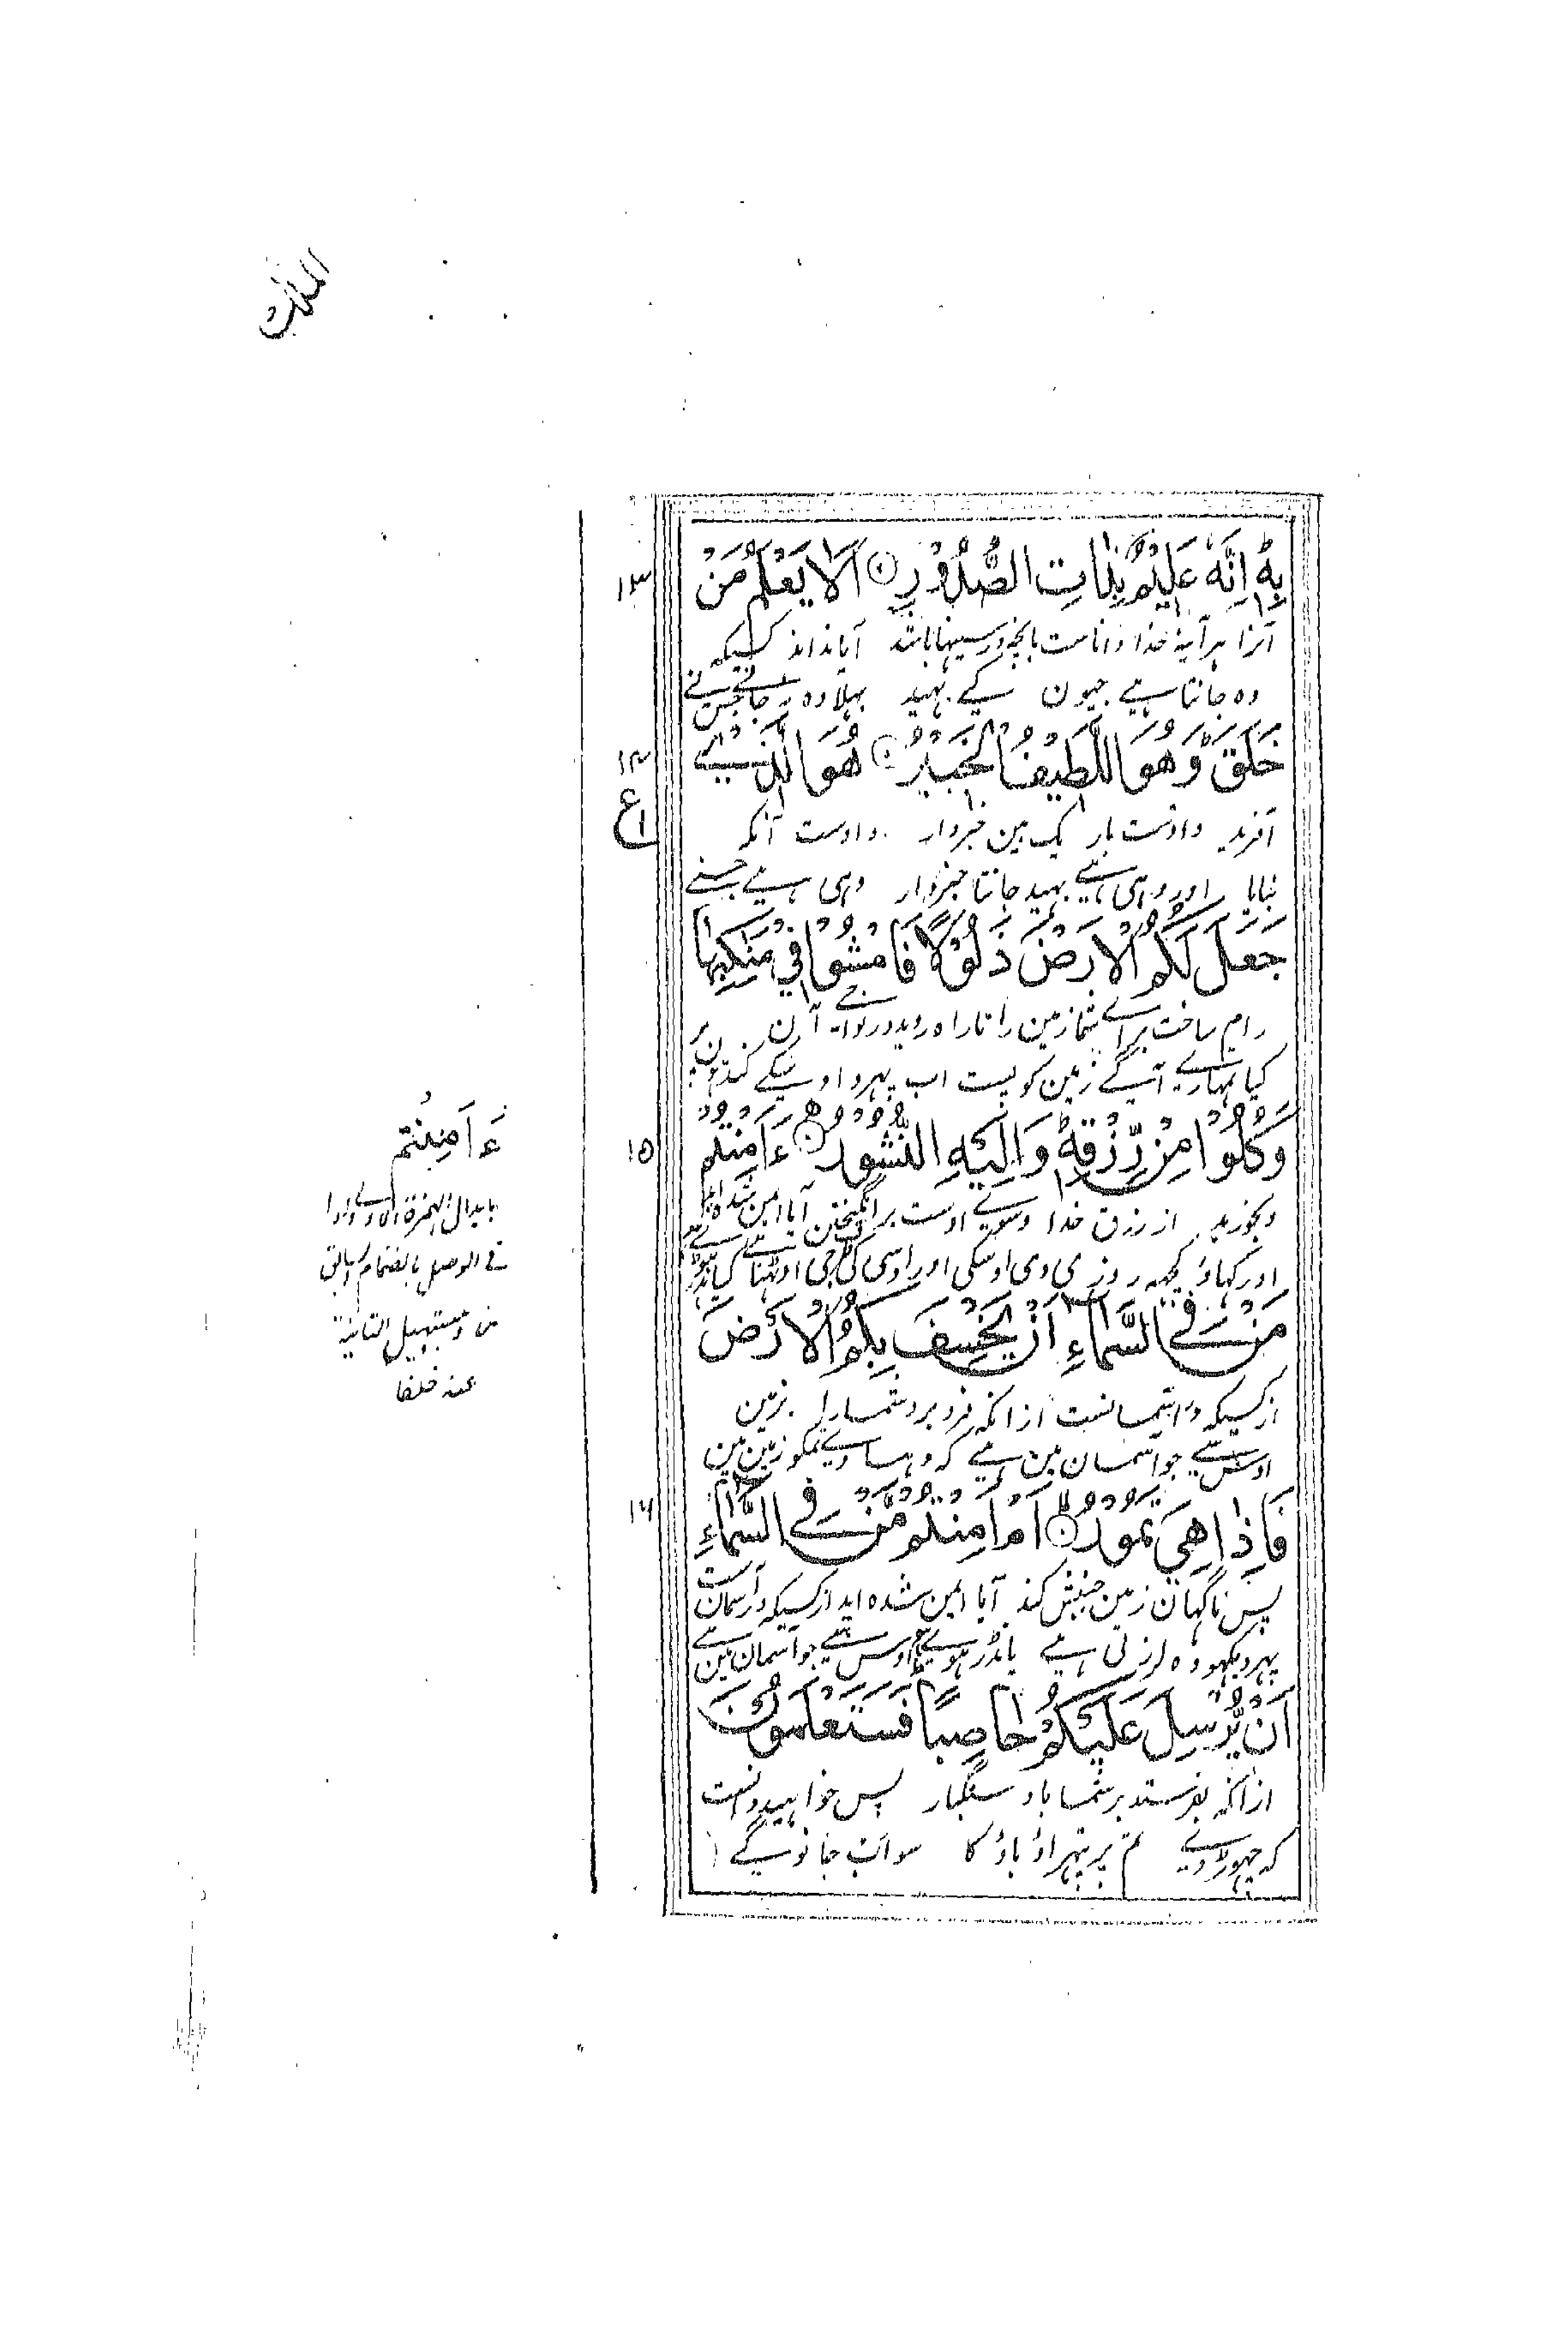 الملك
بِهٖ اِنَّهٗ عَلِيْمٌۢ بِذَاتِ الصُّدُوْرِ اَلَا يَعْلَمُ مَنْ
١٣
آنرا ہرآینہ خدا داناست بآنچہ در سینہا باشد آیا نداند کسیکہ
وہ جانتا ہے جیون کے بہید بہلا وہ نجانے جس نے
خَلَقَ وَهُوَ اللَّطِيْفُ الْخَبِيْرُ هُوَ الَّذِيْ
١٤
ع ١
آفرید و اوست باریک بین خبردار و اوست آنکہ
بنایا اور وہی ہے بہید جانتا خبردار وہی ہے جسنے
جَعَلَ لَكُمُ الْاَرْضَ ذَلُوْلًا فَامْشُوْا فِيْ مَنَاكِبِهَا
رام ساخت برائے شما زمین را تا راہ روید در نواحے آن
کیا تمہارے آگے زمین کو پست اب پہرو اوسکے کندہون پر
وَكُلُوْا مِنْ رِّزْقِهٖ وَاِلَيْهِ النُّشُوْرُ ءَاَمِنْتُمْ
١٥
وبخورید از رزق خدا وسوے اوست برانگیختن آیا ایمن شدہ اید
اور کہاؤ کچہہ روزی دی اوسکی اور اوسی کی طرف جی اوٹہنا ہے کیا نڈر ہوئے
مَّنْ فِي السَّمَاءِ اَنْ يَّخْسِفَ بِكُمُ الْاَرْضَ
از کسیکہ در آسمانست از آنکہ فرو برد شمارا بزمین
اوس سے جو آسمان مین ہے کہ دہساوے تمکو زمین مین
فَاِذَا هِيَ تَمُوْرُ اَمْ اَمِنْتُمْ مَّنْ فِي السَّمَاءِ
١٦
پس ناگہان زمین جنبش کند آیا ایمن شدہ اید از کسیکہ در آسمان است
پہر دیکہو وہ لرزتی ہے یا نڈر ہوئے ہو اوس سے جو آسمان مین ہے
اَنْ يُّرْسِلَ عَلَيْكُمْ حَاصِبًا فَسَتَعْلَمُوْنَ
از آنکہ بفرستد بر شما باد سنگبار پس خواہید دانست
کہ چہوڑ دیوے تم پر پتہراؤ باؤ کا سو اب جانوگے
ءَاَمِنْتُم
بابدال الهمزة الاولے واوا
فی الوصل بانضمام السابق
من وتسهيل الثانية
عنه خلفا